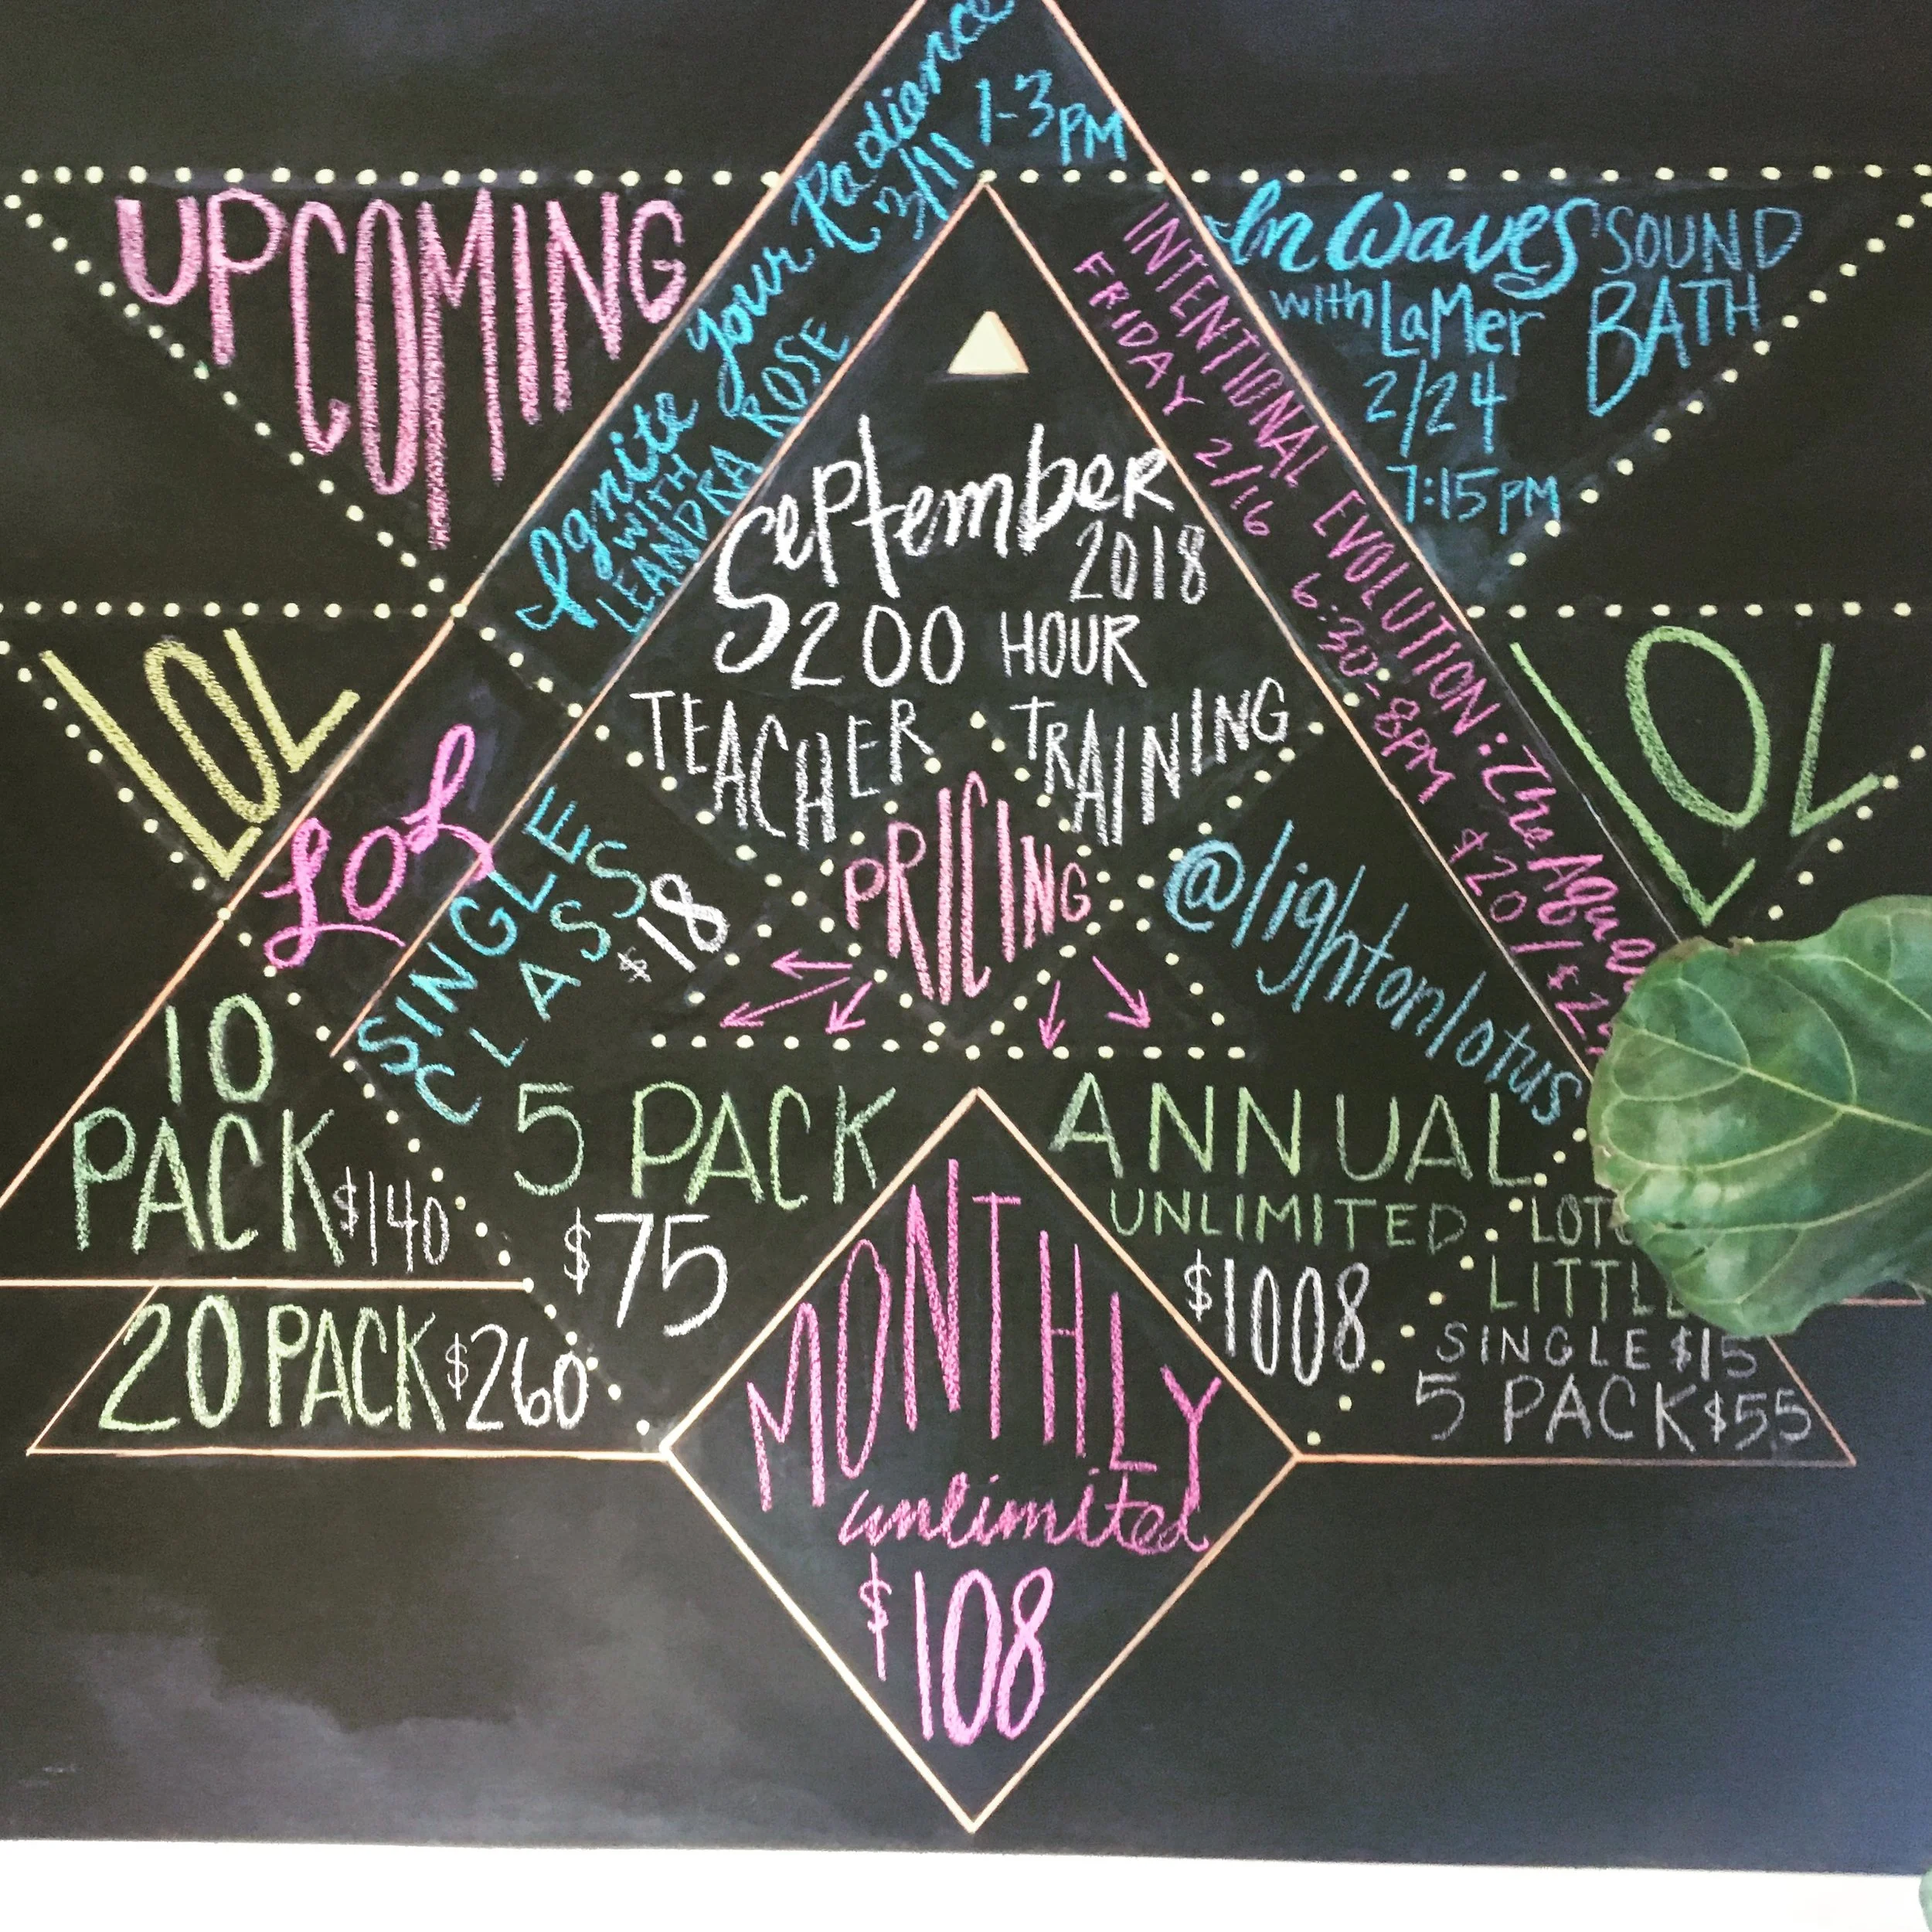 UPCOMING
Ignite your Radiance
WITH
LEANDRA ROSE
3/11 1-3PM
INTENTIONAL EVOLUTION: The
FRIDAY 2/16 6:30-8PM $20/
In Waves SOUND
with LaMer BATH
2/24
7:15PM
September
2018
200 HOUR
TEACHER TRAINING
LOL
LOL
LOL
PRICING
@lightonlotus
SINGLE
CLASS
$18
10
PACK $140
20 PACK $260
5 PACK
$75
ANNUAL
UNLIMITED
$1008
SINGLE $15
5 PACK $55
MONTHLY
unlimited
$108